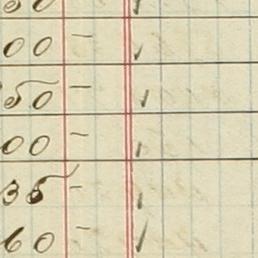 50
00 -
50 -
00 -
35 -
60 -